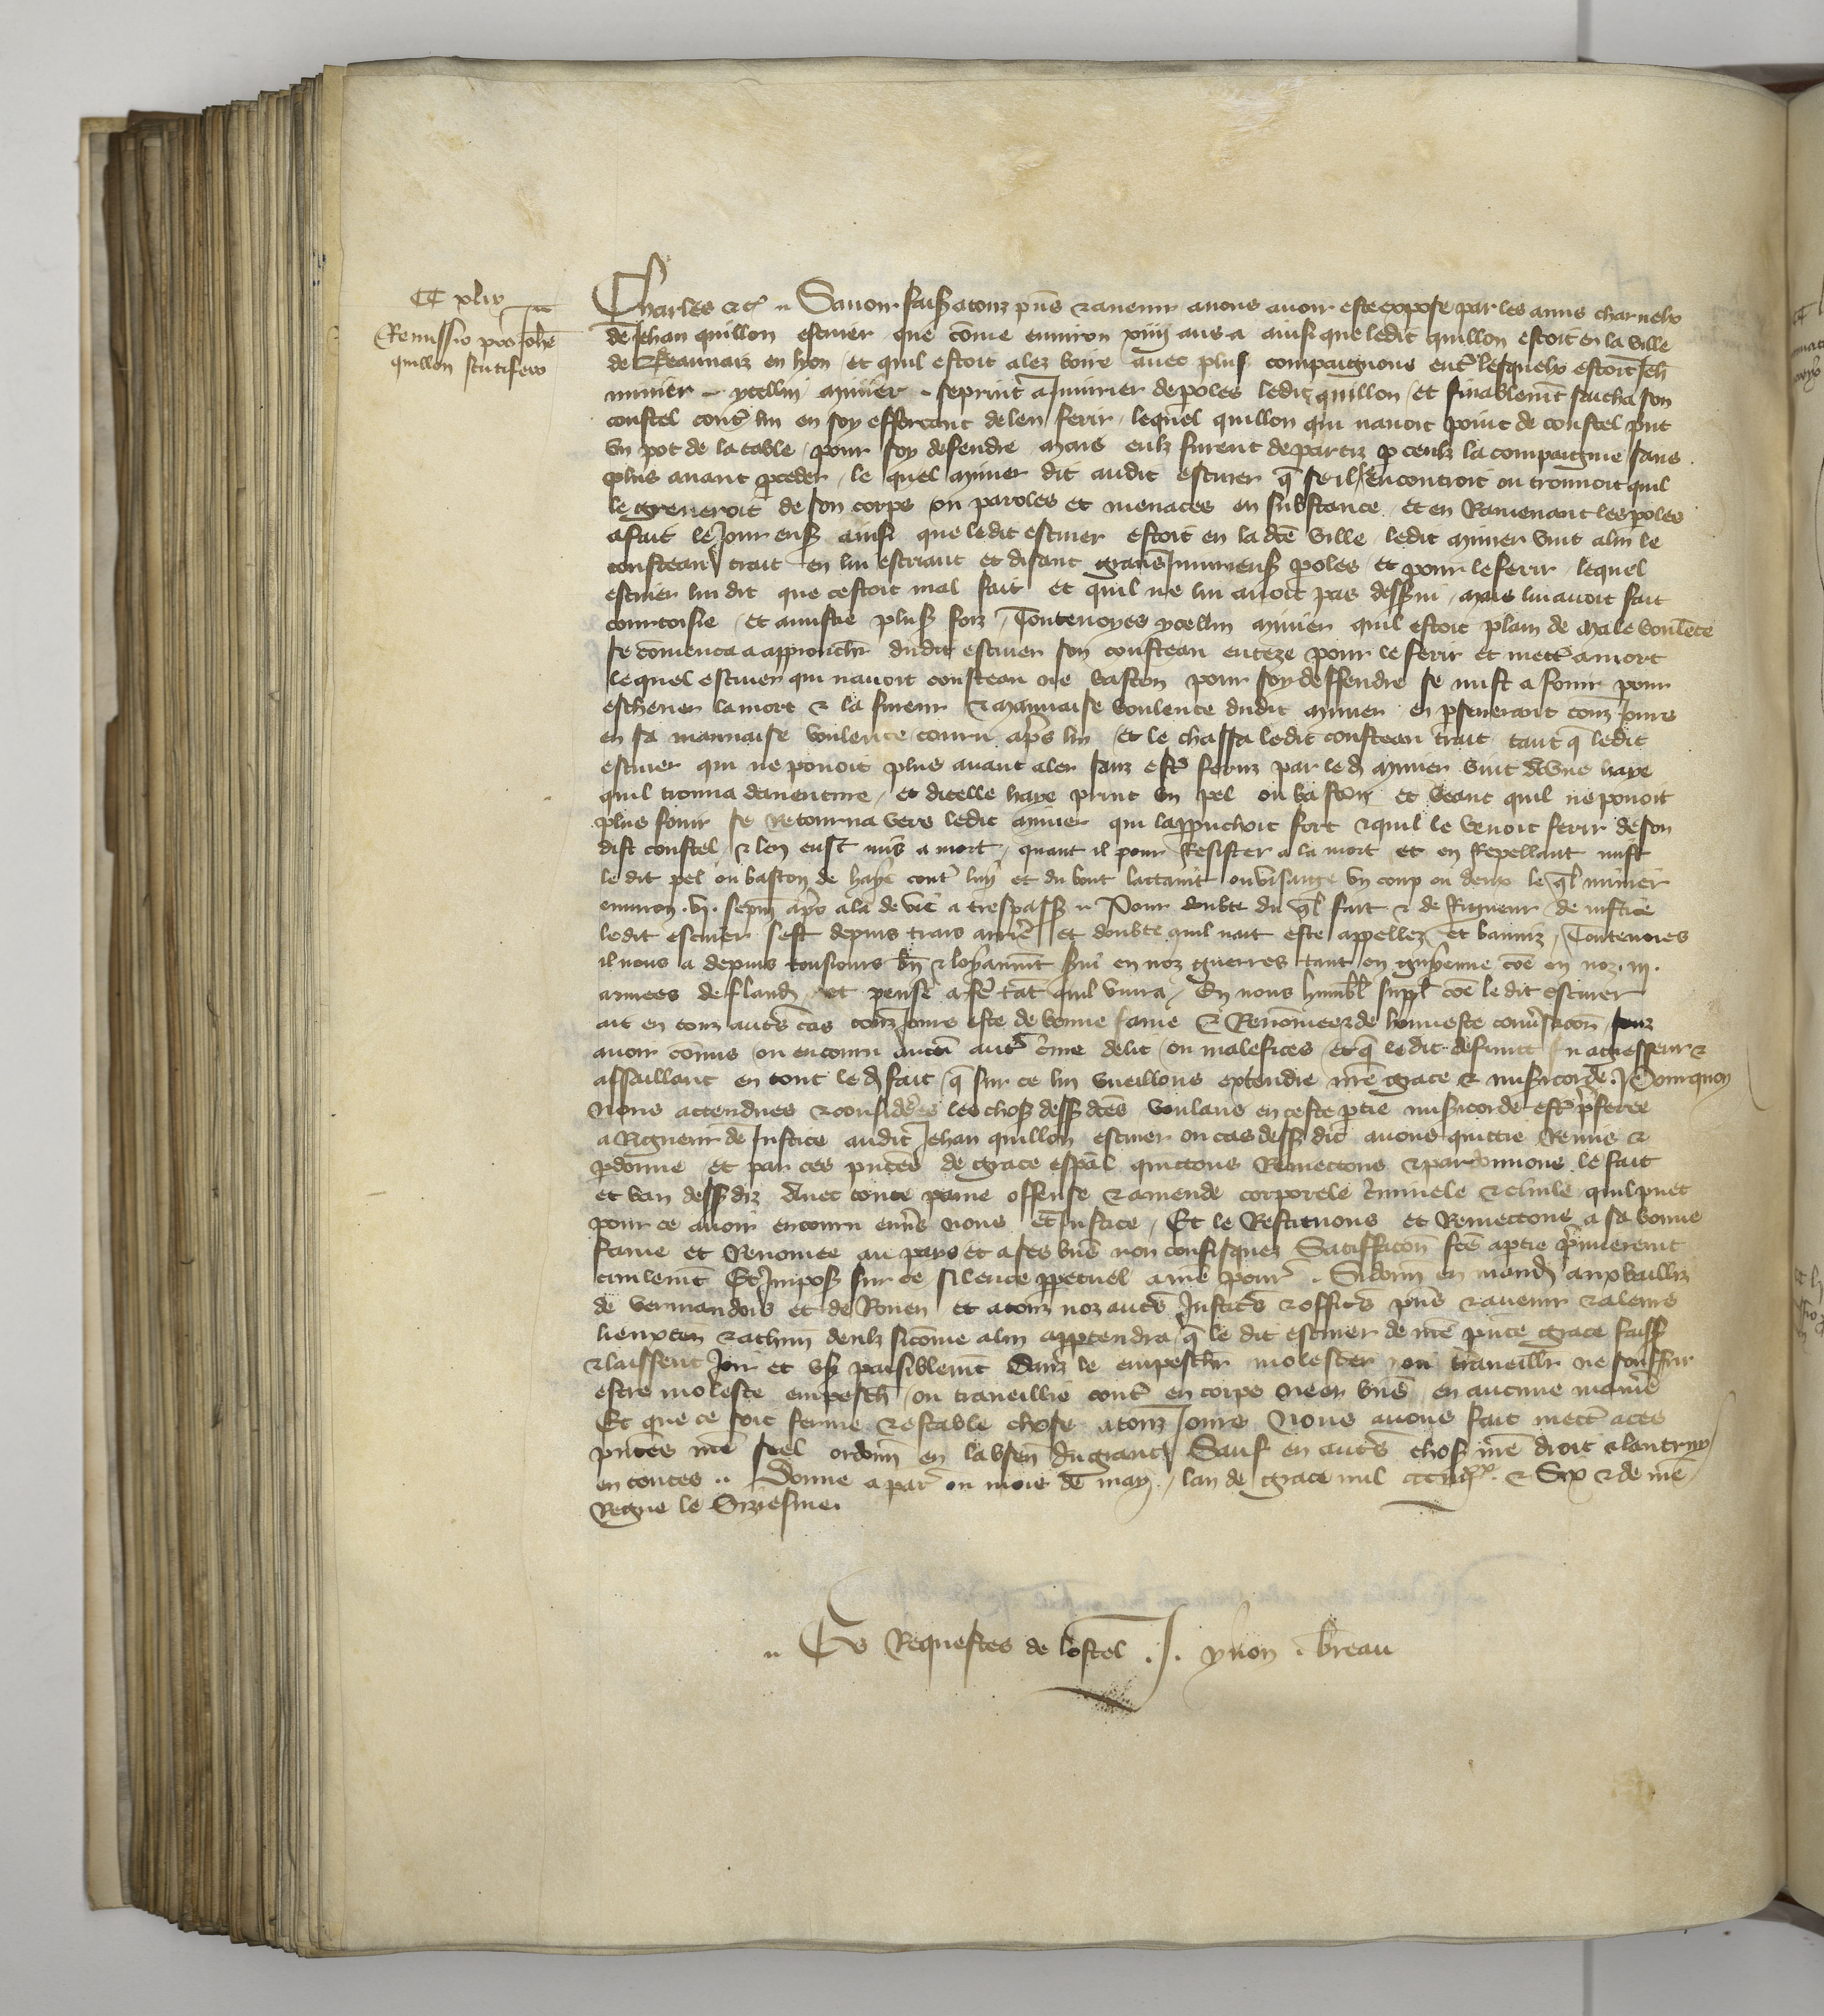 CC xliiij
Remissio pro Johē
quillon scutifero
Charles etc. Sauoir faisōs a touz p̄ns et auenir a nous auoir este expose par les amis charnelx
de Jehan quillon escuier que cōme enuiron xiiij ans a ainsi que ledit quillon estoit en la ville
de en lyon et quil estoit alez boire auec plus compaignons ent̄ lesquelx estoit Jeh̄
minier ycellui minier se print a Jniurier de poles ledit quillon et finablemt̄ sacha son
coustel cont̄ lui en soy efforcant de len ferir lequel quillon qui nauoit point de coustel p̄nt
vn pot de la table pour soy defendre Mais eulz furent departiz p ceulx la compaignie sans
plus auant p̄ceder le quel minier dit audit escuier q̄ se il le encontroit ou trouuoit quil
le greueroit de son corps en paroles et menaces en substance et en Ramenant les poles
a fait le Jour ens ainsi que ledit escuier estoit en la dc̄e ville ledit minier vint a lui le
cousteau trait en lui escriant et disant grans Jniurieus poles et pour le ferir lequel
escuier lui dit que cestoit mal fait et quil ne lui auoit pas desserui mais lui auoit fait
courtoisie et amistie plus foiz Toutenoyes ycellui minier quil estoit plain de male voulēte
se cōmenca a approuchr̄ dudit escuier son cousteau enteze pour le ferir et mett̄ a mort
lequel escuier qui nauoit cousteau ne baston pour soy deffendre se mist a fouir pour
escheuer la mort et la fureur et mauuaise voulente dudit minier en p̄seuerant touz Jours
en sa mauuaise voulente couru ap̄s lui et le chassa ledit cousteau trait tant q̄ ledit
escuier qui ne pouoit plus auant aler sanz est̄ feruz par led̄ minier vint a vne haye
quil trouua dauenture et dicelle haye print vn pel ou baston et veant quil ne pouoit
plus fouir se Retourna vers ledit minier qui lapp̄uchoit fort et quil le venoit ferir de son
dit coustel et len eust mis a mort quant il pour Resister a la mort et en Repellant mist
le dit pel ou baston de haye cont̄ luy et du bout lattaint ou visaige vn coup ou deux le q̄l minier
enuiron .vj. sepm̄ ap̄s ala de vie a trespass. Pour doubte du q̄l fait et de Rigueur de iustice
ledit escuier sest depuis trais arrier̄ et doubte quil nait este appellez et banniz Toutenoies
il nous a depuis tousiours bn̄ et loyaumt̄ s̄ui en noz guerres tant en guyenne cōe en noz .iij.
armees de fland̄ et pense a fē tāt quil viura En nous humbl̄ suppl̄ cōe le dit escuier
ait en touz aut̄s cas touz Jours este de bonne fame et Renōmee et de honneste conūsacōn sanz
auoir cōmis ou encouru aucū aut̄ c̄me delit ou malefices et q̄ le dit defunct fu agresseur et
assaillant en tout led̄ fait q̄ sur ce lui vueillons extendre nr̄e grace et mis̄icorde Pourquoy
Nous attendues et considerees les chos dess dc̄es voulans en ceste p̄tie mis̄icorde est̄ p̄feree
a Rigueur de Justice audit Jehan quillon escuier ou cas dess dit auons quittie Remis et
p̄donne et par ces p̄ntes de grace esp̄al quictons Remectons et pardonnons le fait
et ban dess diz auec toute paine offense et amende corporele c̄iminele et ciuile quil puet
pour ce auoir encouru enūs nous et Justice Et le Restituons et Remectons a sa bonne
fame et Renomee au pays et a ses bn̄s non confisquez Satisfacōn fc̄e a p̄tie p̄mierem̄t
ciuilemt̄ Et Jmpos sur ce silence ppetuel a nr̄e pour̄ Si donn̄ en mand̄ aux bailliz
de vermandois et de Rouen et a touz noz aut̄s Justic̄s et offic̄s p̄ns et auenir et a leurs
lieuxten̄ et a chun deulx sicōme a lui appartendra q̄ le dit escuier de nr̄e p̄nte grace faiss
et laissent Joir et vs̄ paisiblemt̄ sanz le empeschr̄ molester ou traueillr̄ ne souffrir
estre moleste empeschē ou traueillie cont̄ en corps ne en bn̄s en aucune manier̄e
Et que ce soit ferme et estable chose a touz Jours Nous auons fait mett̄ a ces
p̄ntes nr̄e seel ordonn̄ en labsen̄ du grant Sauf en aut̄s chos nr̄e droit et lautruy
en toutes. Donne a par̄ ou mois de may lan de grace mil ccciiijxx et Six et de nr̄e
Regne le Siziesme.
Es Requestes de lostel .J. yuon . breau